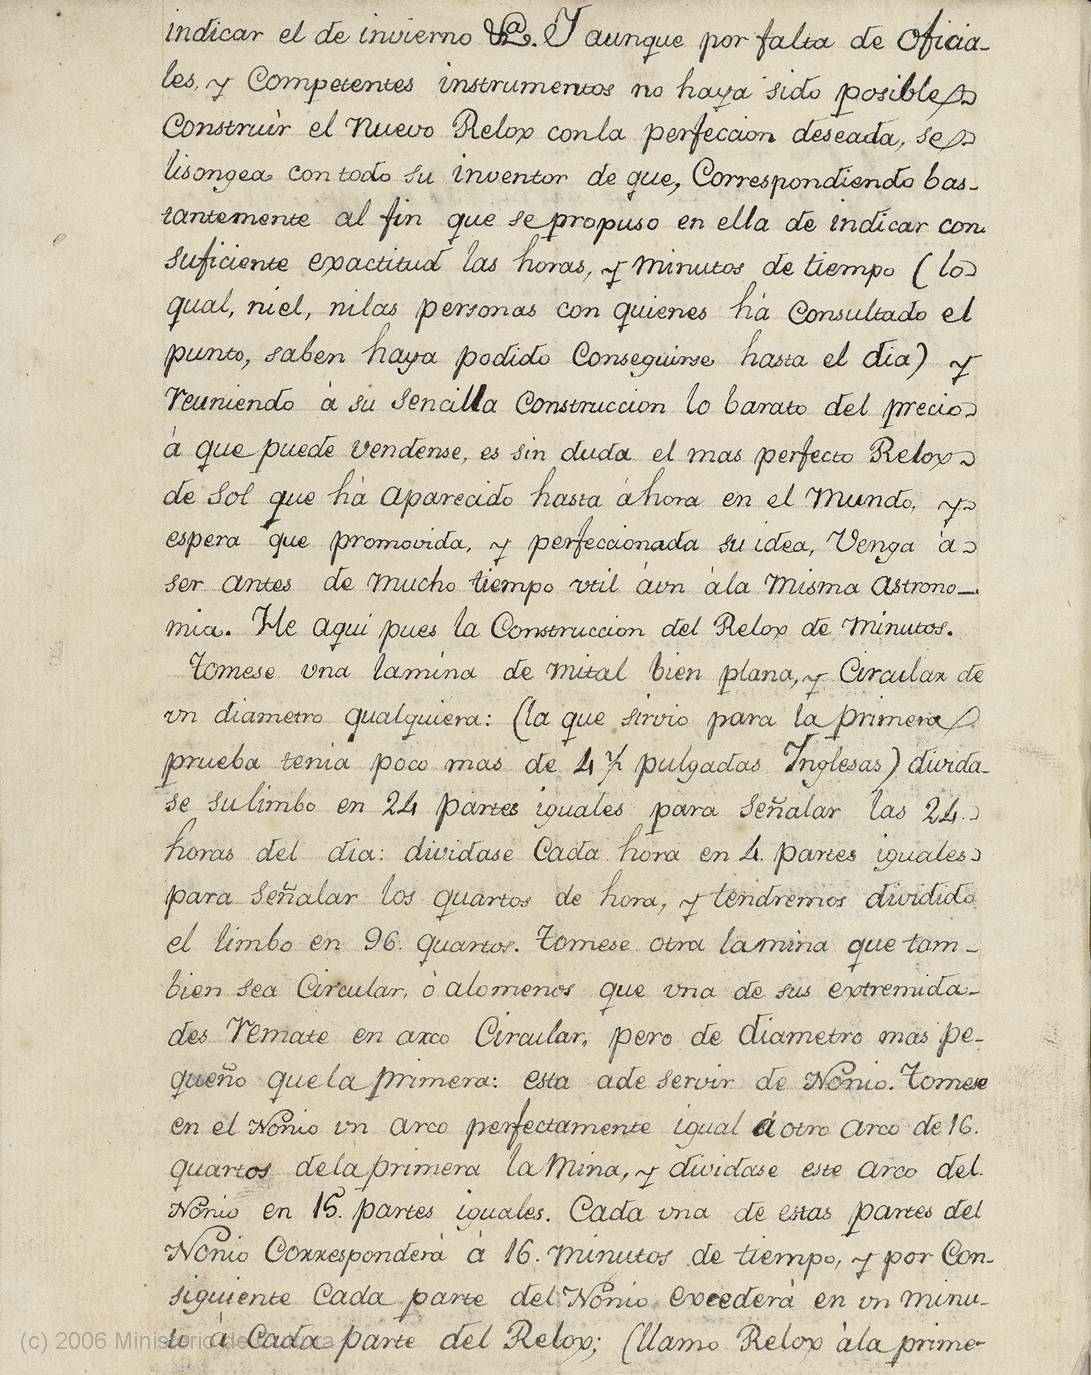 indicar el de invierno &a. Y aunque por falta de oficia-
les, y Competentes instrumentos no haya sido posible
Construir el Nuevo Relox conla perfeccion deseada, se
lisongea con todo su inventor de que, Correspondiendo bas-
tantemente al fin que se propuso en ella de indicar con
suficiente exactitud las horas, y minutos de tiempo (lo
qual, niel, nilas personas con quienes hà Consultado el
punto, saben haya podido Conseguirse hasta el dia) y
reuniendo à su sencilla Construccion lo barato del precio
à que puede venderse, es sin duda el mas perfecto Relox
de Sol que hà Aparecido hasta àhora en el Mundo, y
espera que promovida, y perfeccionada su idea, Venga à
ser Antes de Mucho tiempo vtil àvn àla Misma Astrono-
mia. He Aqui pues la Construccion del Relox de Minutos.
Tomese vna lamina de Mital bien plana, y Circular de
vn diametro qualquiera: (la que sirvio para la primera
prueba tenia poco mas de 4 1/2 pulgadas Inglesas) divida-
se sulimbo en 24 partes iguales para señalar las 24.
horas del dia: dividase Cada hora en 4. partes iguales
para señalar los quartos de hora, y tendremos dividido
el limbo en 96. quartos. Tomese otra lamina que tam-
bien sea Circular, ò alomenos que vna de sus extremida-
des Remate en arco Circular, pero de diametro mas pe-
queño quela primera: esta ade servir de Nonio. Tomese
en el Nonio vn Arco perfectamente igual à otro Arco de 16.
quartos dela primera laMina, y dividase este Arco del
Nonio en 15. partes iguales. Cada vna de estas partes del
Nonio Corresponderà à 16. Minutos de tiempo, y por Con-
siguiente Cada parte del Nonio excederà en vn minu-
to à Cada parte del Relox; (llamo Relox àla prime-
(c) 2006 Ministerio de Cultura